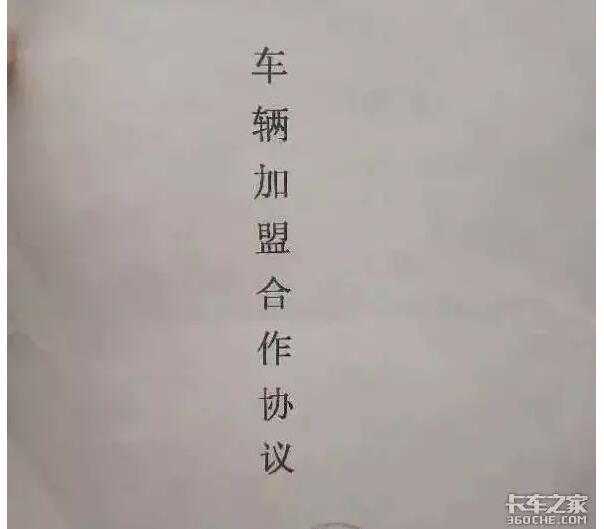 车辆加盟合作协议
卡车之家
360CHE.COM